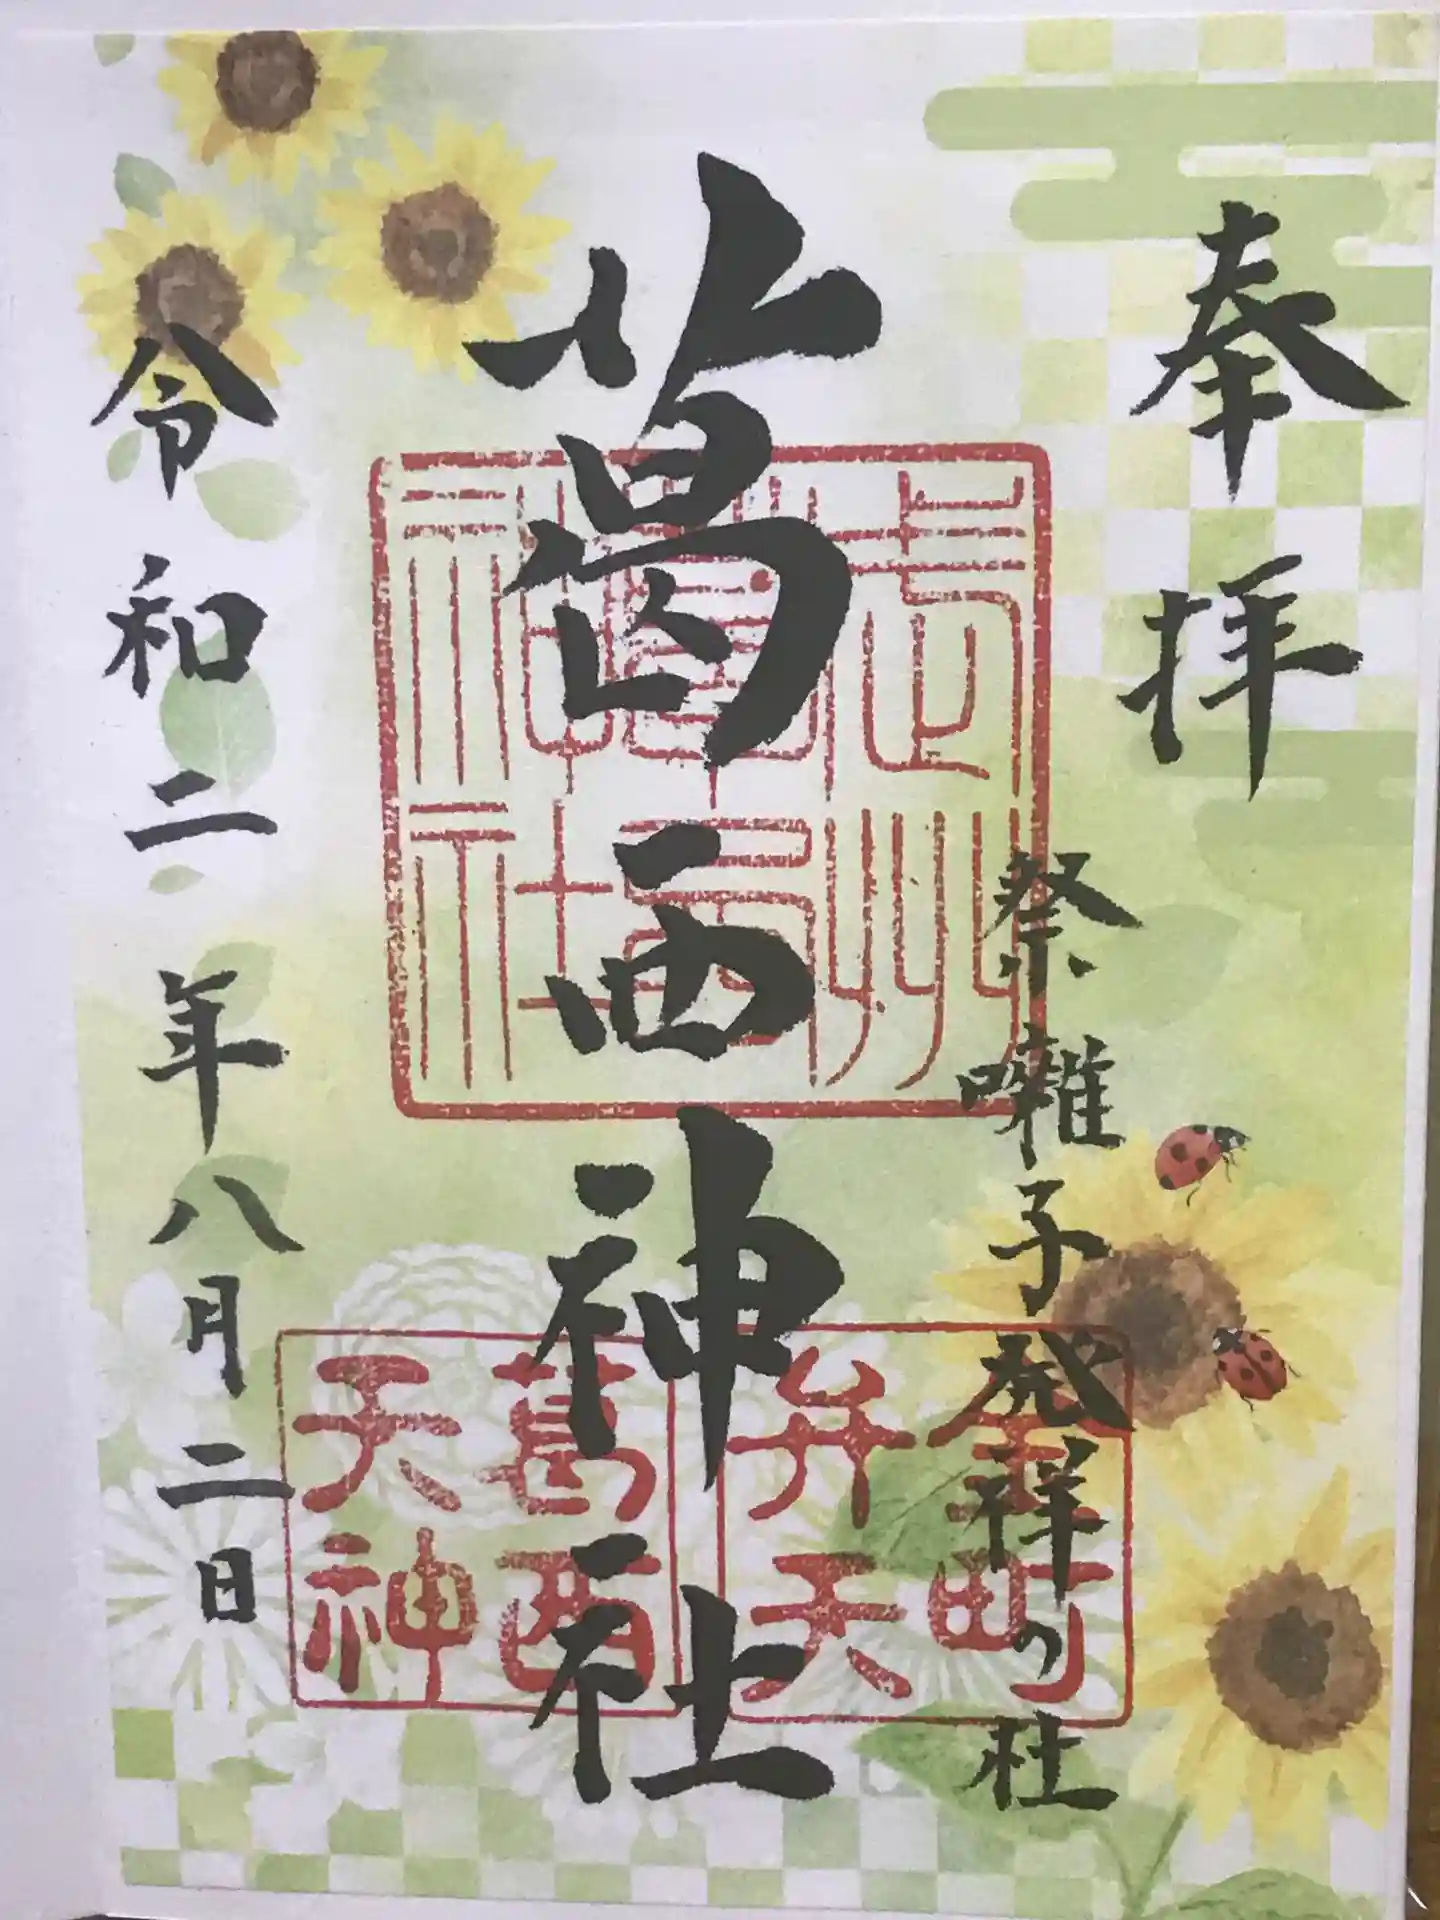 奉拝
祭囃子発祥の社
葛西神社
令和二年八月二日
葛西神社
金町
弁天
葛西
天神